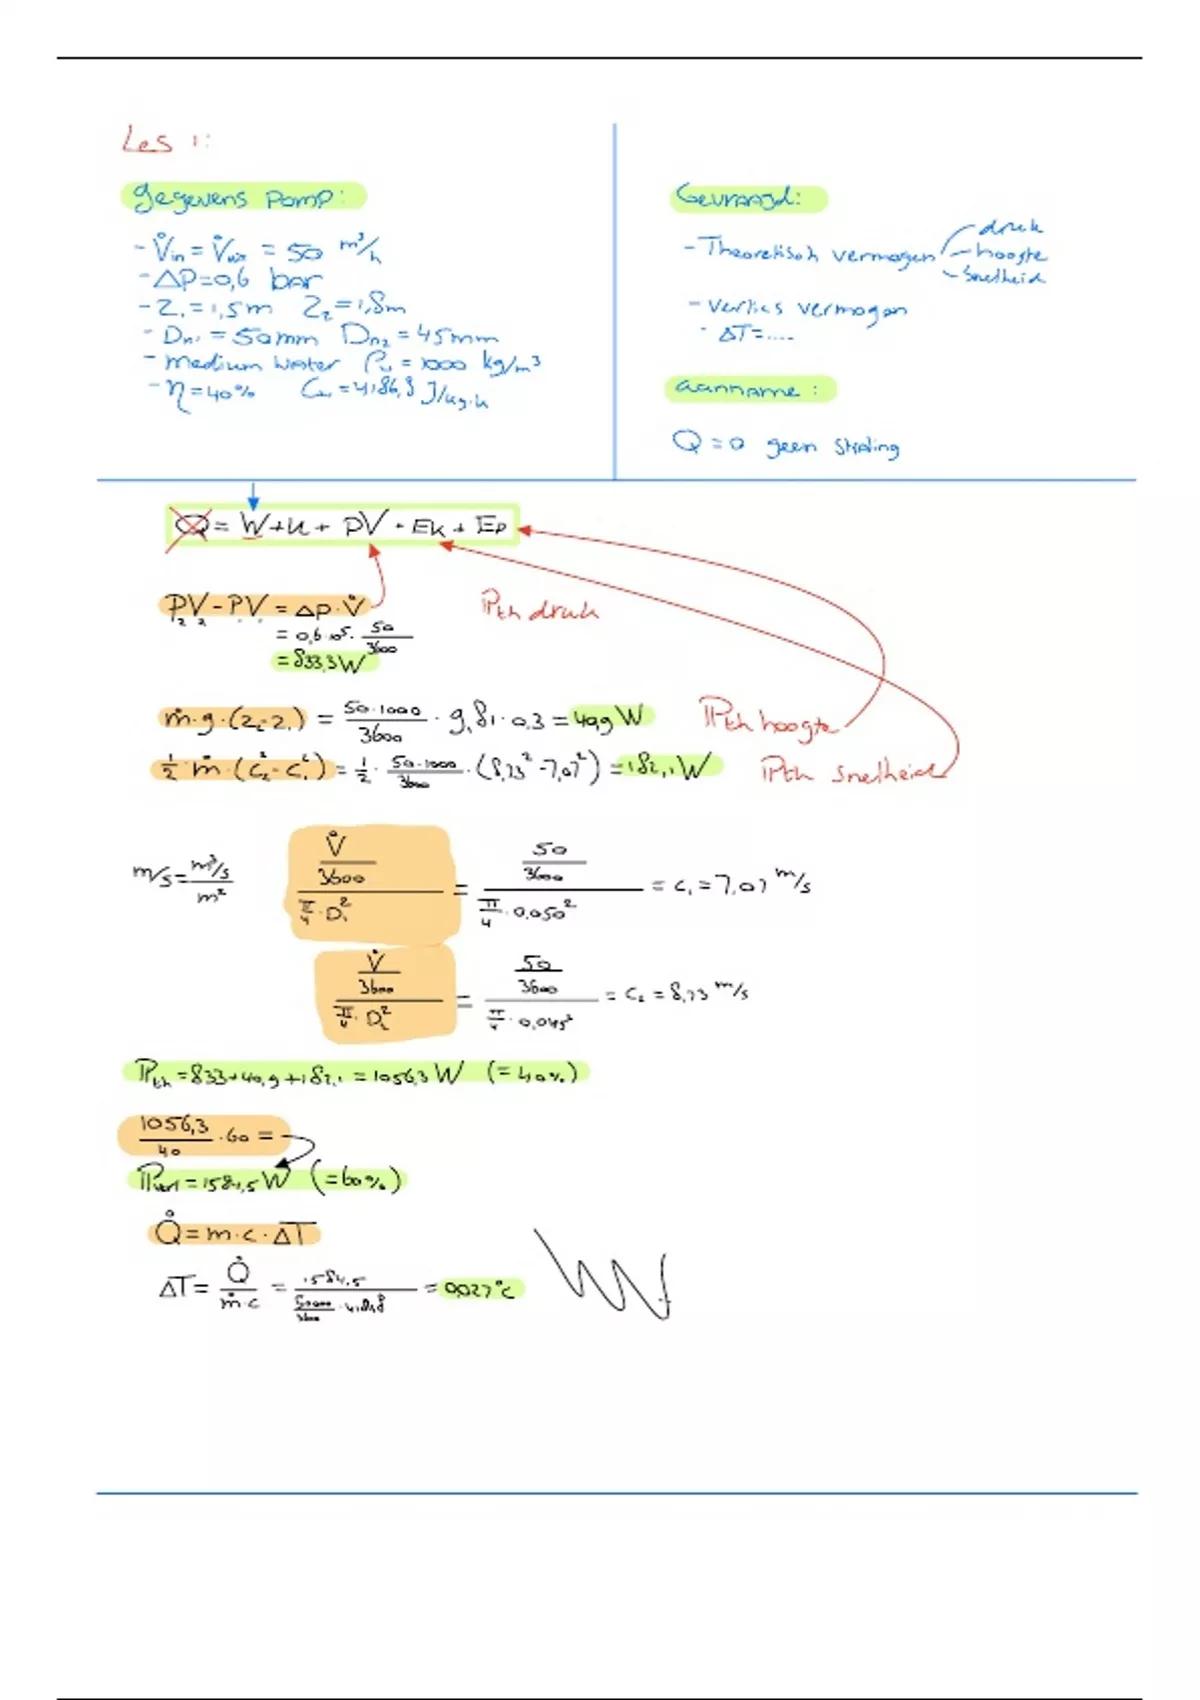 Les 1:
gegevens pomp:
- V̇in = V̇uit = 50 m³/h
- ΔP=0,6 bar
- Z₁=1,5m Z₂=1,8m
- Dn₁ = 50mm Dn₂ = 45mm
- medium water ρw = 1000 kg/m³
- η=40% Cw=4186,8 J/kg·k
Gevraagd:
- Theoretisch vermogen
druk
hoogte
snelheid
- verlies vermogen
- ΔT=....
aanname:
Q=0 geen straling
Q = W+u+ PV + Ek + Ep
P₂V₂-P₁V₁ = Δp·V̇
= 0,6·10⁵ · 50/3600
= 833,3W
Pth druk
ṁ·g·(z₂-z₁) = 50·1000/3600 · 9,81 · 0,3 = 40,9 W
Pth hoogte
1/2·ṁ·(C₂²-C₁²) = 1/2 · 50·1000/3600 · (8,73²-7,07²) = 182,1W
Pth snelheid
m/s = m³/s / m²
V̇/3600 / π/4·D₁² = 50/3600 / π/4·0,050² = C₁ = 7,07 m/s
V̇/3600 / π/4·D₂² = 50/3600 / π/4·0,045² = C₂ = 8,73 m/s
Pth = 833+40,9+182,1 = 1056,3 W (= 40%)
1056,3/40 ·60 =
Pverl = 1584,5 W (=60%)
Q̇ = m·c·ΔT
ΔT = Q̇/ṁ·c = 1584,5 / 50000/3600 · 4186,8 = 0,027°C